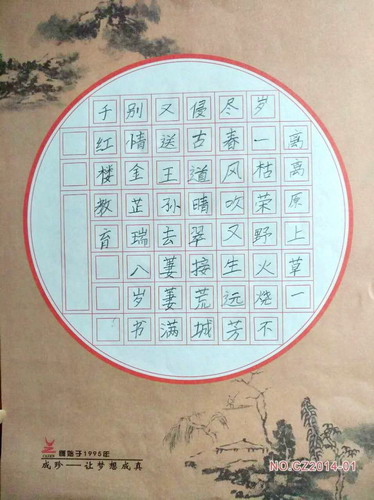 离离原上草一
岁一枯荣野火烧不
尽春风吹又生远芳
侵古道晴翠接荒城
又送王孙去萋萋满
别情金芷瑞八岁书
于红楼教育
始于1995年
成珍——让梦想成真
NO.CZ2014-01